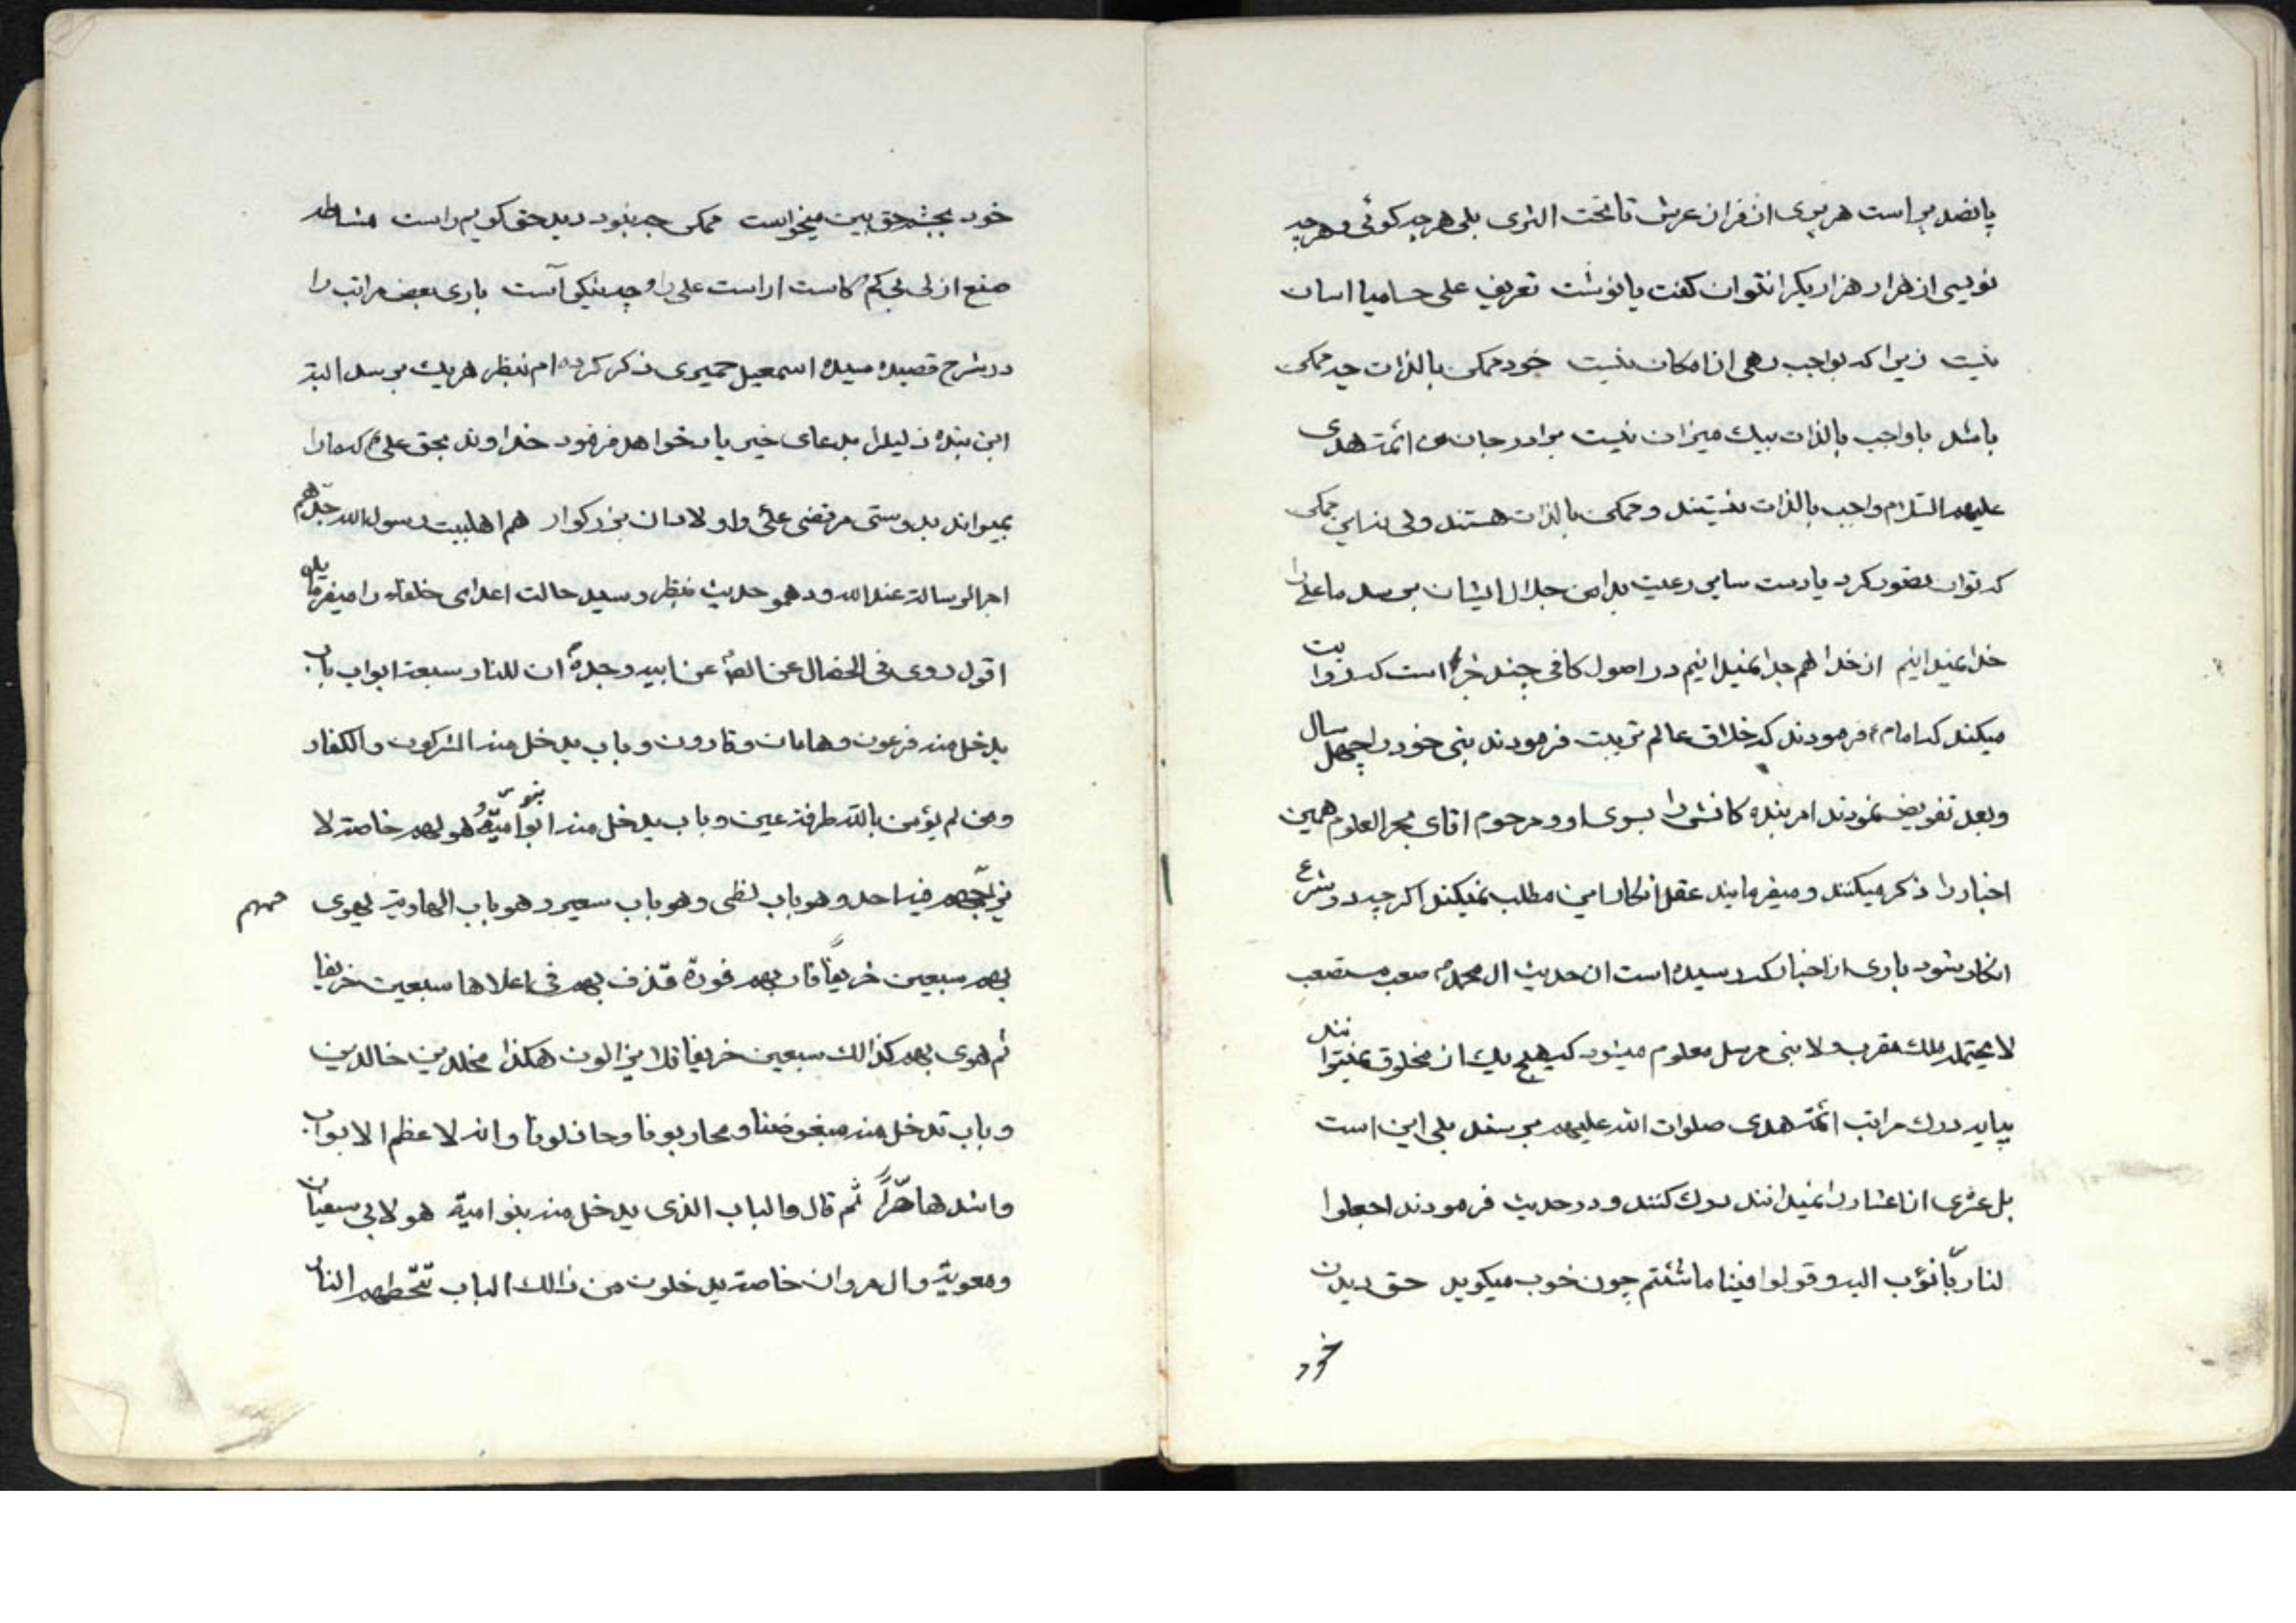 پانصد پر است هر پری از فران عرش تا تخت الثری بلی هر چه کوئی و هر چه
نویسی از هزار هزار یکرا نتوان کفت یا نوشت تعریف علی حسامیا اسان
نیست زیرا که بواجب رهی از امکان نیست خود ممکن بالذات چه ممکن
باشد با واجب بالذات بیک میزان نیست برادر جان من ائمه هدی
علیهم السلام واجب بالذات نیستند و ممکن بالذات هستند ولی نه این ممکن
که توان تصور کرد یا دست سامی رعیت بدامن جلال ایشان برسد ما علی را
خدا نمیدانیم از خدا هم جدا نمیدانیم در اصول کافی چند خبر است که روایت
میکند که امام ع فرمودند که خلاق عالم تربیت فرمودند نبی خود را چهل سال
و بعد تفویض نمودند امر بنده کانش را بسوی او و مرحوم اقای بحر العلوم همین
اخبار را ذکر میکنند و میفرمایند عقل انکار این مطلب نمیکند اکر چه در شرع
انکار شود باری از اخبار که رسیده است ان حدیث ال محمد ص صعب مستصعب
لا یحتمله ملك مقرب و لا نبی مرسل معلوم میشود که هیچ یك از مخلوق نمیتوانند
بپایه درك مراتب ائمه هدی صلوات الله علیهم برسند بلی این است
بل عشری از اعشار را نمیدانند درك کنند و در حدیث فرمودند اجعلوا
لنا ربّا نؤب الیه و قولوا فینا ما شئتم چون خوب میکوید حق دیدن
خود
خود بچشم حق بین میخواست ممکن چه بنود دید حق کویم راست مشاطه
صنع از لی بی کم کاست اراست علی را و چه نیکو آست باری بعض مراتب را
در شرح قصیده سیده اسمعیل حمیری ذکر کرده ام بنظر هر یك برسد البته
این بنده ذلیلرا بدعای خیر یاد خواهد فرمود خداوند بحق علی ع که ما را
بمیراند بدوستی مرتضی علی و اولادان بزرکوار هم اهلبیت رسول الله جدّهم
اجر الرسالة عند الله و دهمو حدیث بنظر رسید حالت اعدای خلفاء را میفرماید
اقول روی فی الخصال عن الص عن ابیه و جده ع ان للنار سبعة ابواب باب
یدخل منه فرعون و هامان و قارون و باب یدخل منه المشرکون و الکفار
و من لم یؤمن بالله طرفة عین و باب یدخل منه بنو امیّة هو لهم خاصة لا
یزاحمهم فیه احد و هو باب لظی و هو باب سعیر و هو باب الهاویة یهوی
بهم سبعین خریفًا فار بهم فورة قذف بهم فی اعلاها سبعین خریفا
ثم هوی بهم کذالك سبعین خریفا فلا یزالون هکذا مخلدین خالدین
و باب تدخل منه مبغوضنا و محاربونا و خاذلونا و انه لاعظم الابواب
و اشدها حرّا ثم قال و الباب الذی یدخل منه بنو امیة هو لابی سفیان
و معویة و ال مروان خاصة یدخلون من ذالك الباب تحطمهم النار